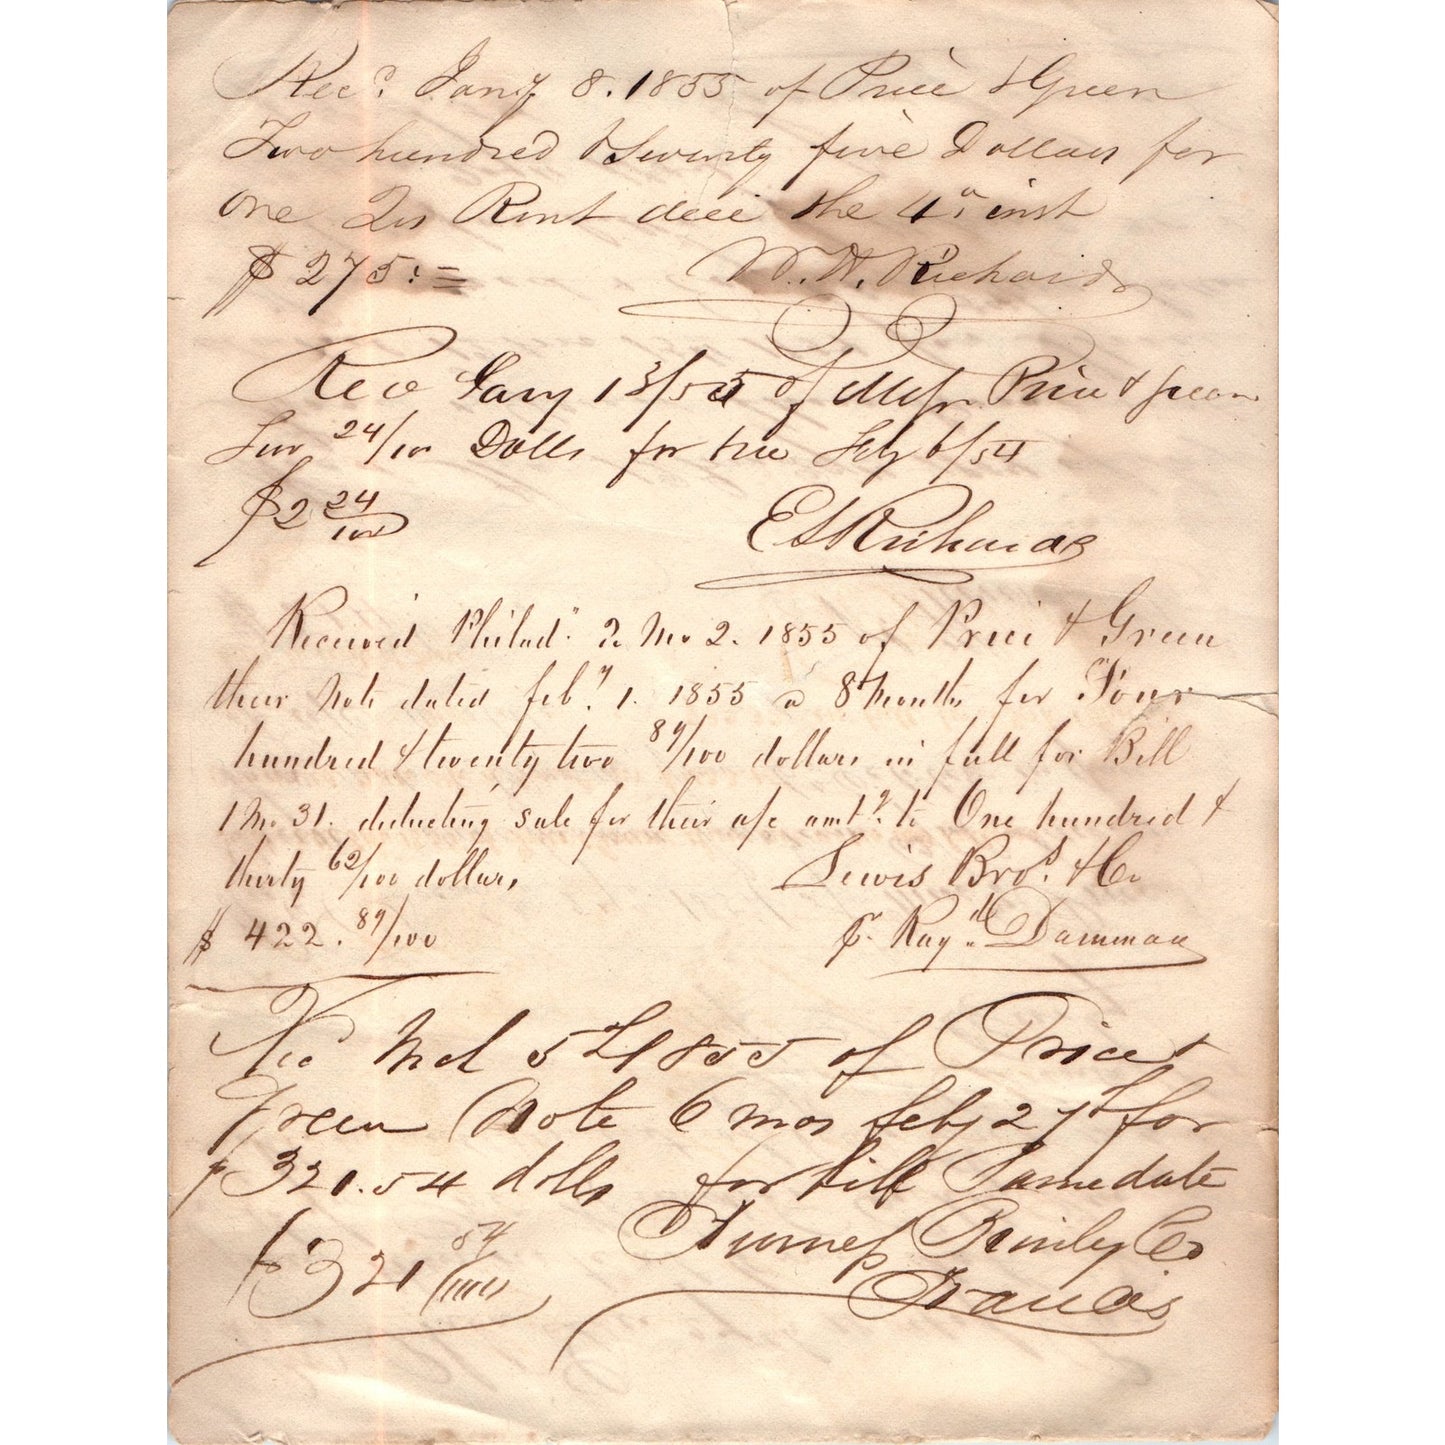 Recd. Jany 8. 1855 of Price & Green
Two hundred & Seventy five Dollars for
one Qrs Rent due the 4th inst
$ 275:= W. H. Richards
Recd Jany 13/55 of Messr Price & Green
Two 24/100 Dolls for Feby 6/54
$2 24/100 E S Richards
Received Philada. 2 Mo 2. 1855 of Price & Green
their Note dated Feby. 1. 1855 @ 8 Months for Four
hundred & twenty two 89/100 dollars in full for Bill
1 Mo 31. deducting sale for their a/c amtg. to One hundred &
thirty 62/100 dollars,
Lewis Bros. & Co
$ 422. 89/100 Damman
Rec Mch 5th 1855 of Price &
Green Note 6 mos feby 27th for
$321.54 dolls for bill Same date
Furness Brinley Co
$321 54/100 Francis